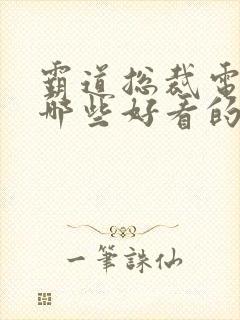 霸道総裁電
哪些好看的
一筆誅仙